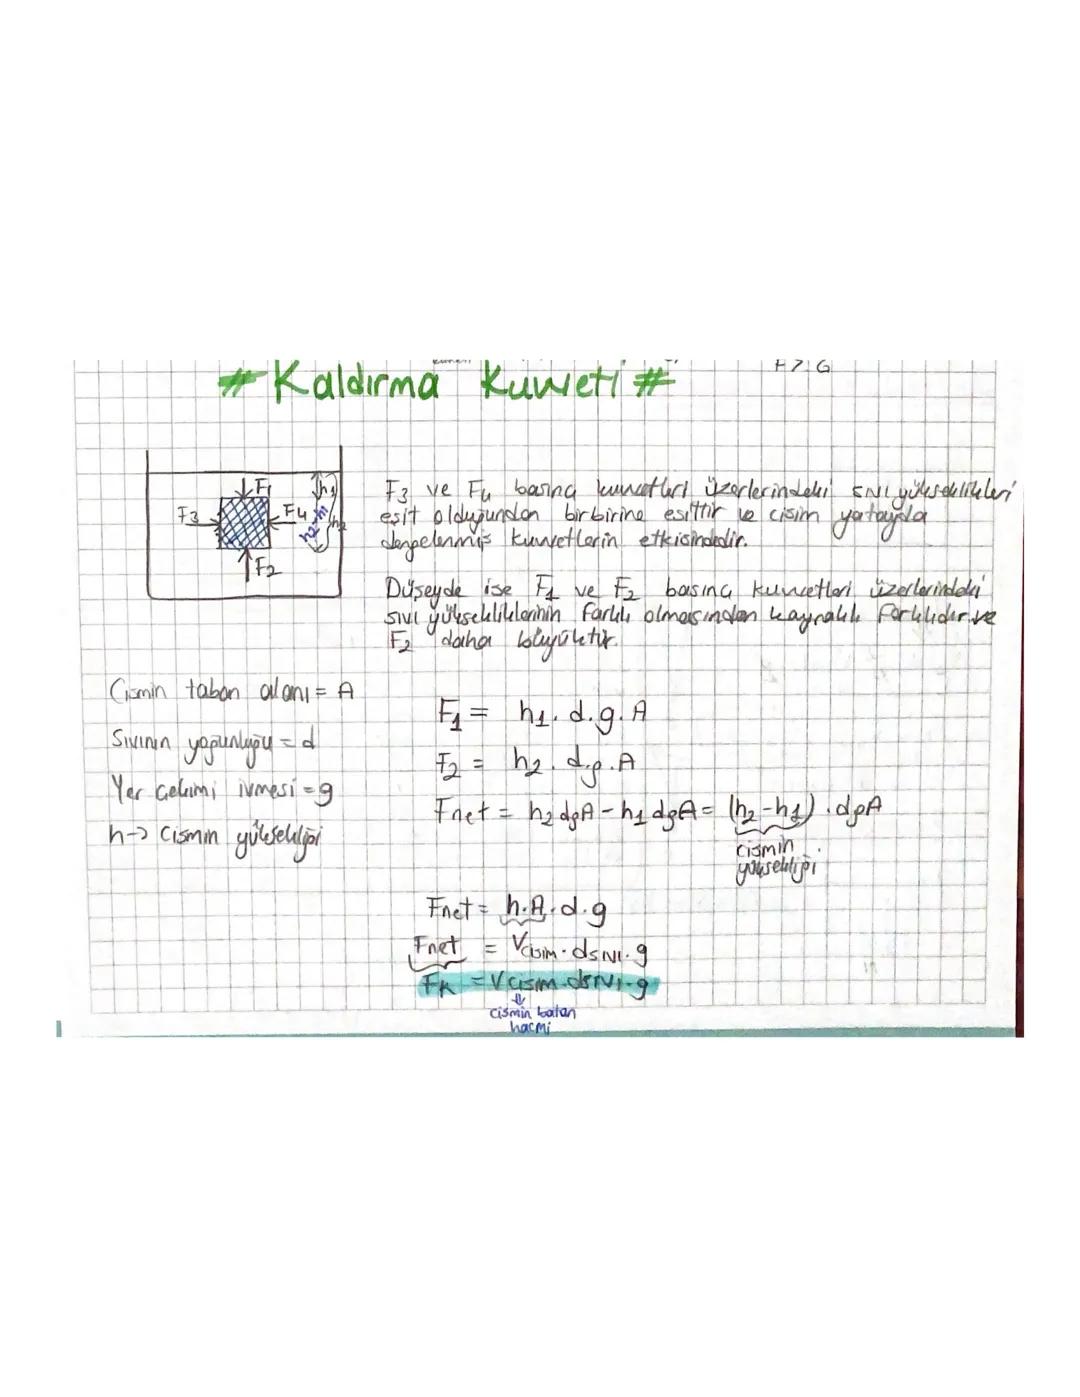 F > G
# Kaldırma Kuvveti #
F1
F3
F4
F2
h1
h2-h1
h2
F3 ve F4 basınç kuvvetleri üzerlerindeki sıvı yükseklikleri
eşit olduğundan birbirine eşittir ve cisim yatayda
dengelenmiş kuvvetlerin etkisindedir.
Düşeyde ise F1 ve F2 basınç kuvvetleri üzerlerindeki
sıvı yüksekliklerinin farklı olmasından kaynaklı farklıdır ve
F2 daha büyüktür.
Cismin taban alanı = A
Sıvının yoğunluğu = d
Yer çekimi ivmesi = g
h-> Cismin yüksekliği
F1 = h1.d.g.A
F2 = h2.d.g.A
Fnet = h2dgA - h1dgA = (h2-h1).dgA
cismin
yüksekliği
Fnet = h.A.d.g
Fnet = Vcisim.dsıvı.g
FK = Vcisim.dsıvı.g
cismin batan
hacmi